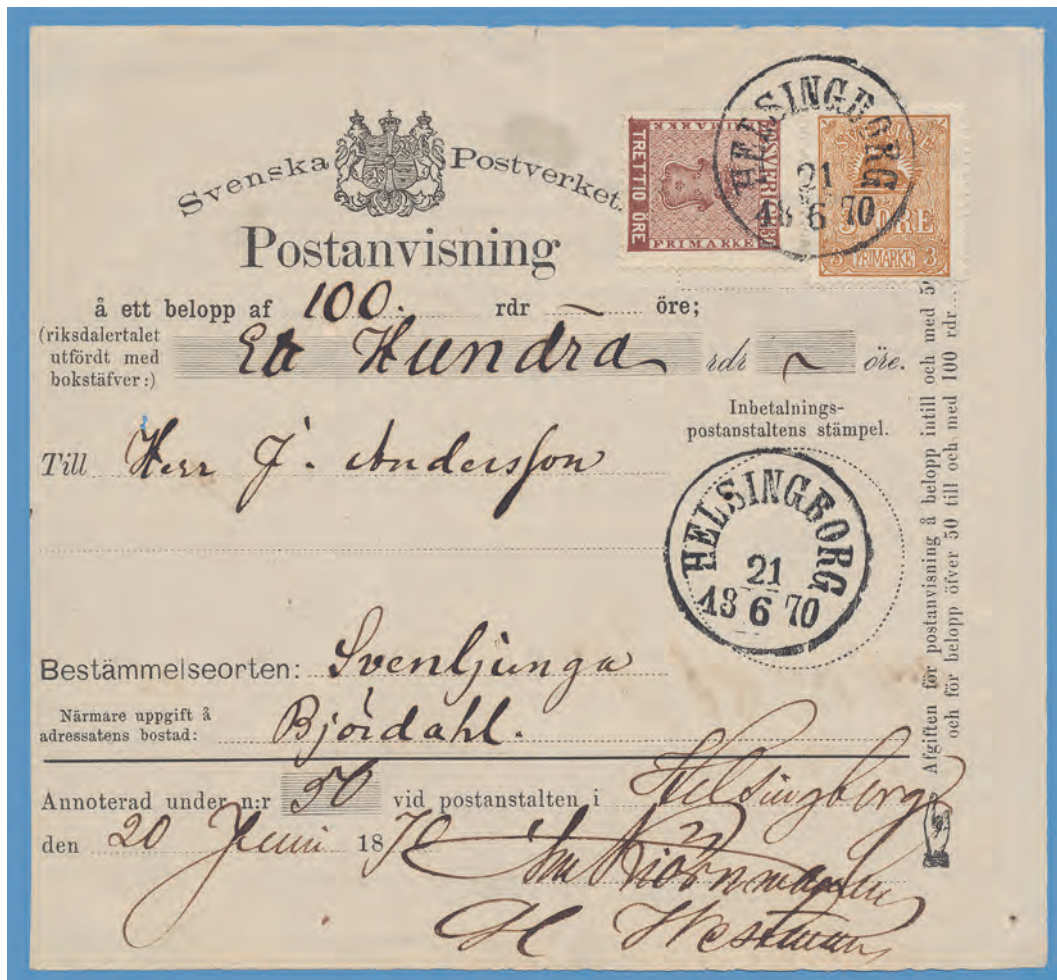 Svenska Postverket.
Postanvisning
TRETTIO ÖRE
FRIMARKE
SVERIGE
3 ÖRE
3 FRIMÄRKE 3
HELSINGBORG
21
18 6 70
å ett belopp af 100. rdr — öre;
(riksdalertalet
utfördt med
bokstäfver:)
Ett Hundra rdr öre.
Inbetalnings-
postanstaltens stämpel.
Till Herr J. Andersson
HELSINGBORG
21
18 6 70
Bestämmelseorten: Svenljunga
Närmare uppgift å
adressatens bostad: Björdahl.
Annoterad under n:r 50 vid postanstalten i Helsingborg
den 20 Juni 1870
H Westman
Afgiften för postanvisning å belopp intill och med 5
och för belopp öfver 50 till och med 100 rdr